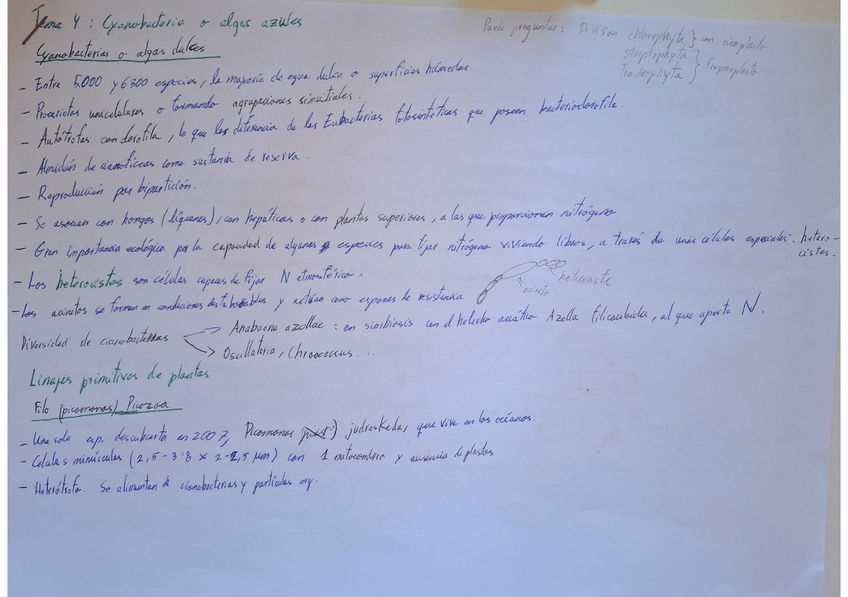 Tema 4: Cyanobacteria o algas azules
Puede preguntar: Division chlorophyta } con ficoplasto
Streptophyta
Traqueophyta } Fragmoplasto
Cyanobacterias o algas dulces
- Entre 5.000 y 6300 especies, la mayoría de agua dulce o superficies húmedas
- Procariotas unicelulares o formando agrupaciones sincitiales.
- Autótrofas con clorofila, lo que las diferencia de las Eubacterias fotosintéticas que poseen bacterioclorofila.
- Almidón de cianofíceas como sustancia de reserva.
- Reproducción por bipartición.
- Se asocian con hongos (líquenes), con hepáticas o con plantas superiores, a las que proporcionan nitrógeno
- Gran importancia ecológica por la capacidad de algunas especies para fijar nitrógeno viviendo libres, a través de unas células especiales. heterocistes.
- Los heterocistos son células capaces de fijar N atmosférico.
heterociste
acineto
- Los acinetos se forman en condiciones desfavorables y actúan como esporas de resistencia
Diversidad de cianobacterias
Anabaena azollae: en simbiosis con el helecho acuático Azolla filiculoides, al que aporta N.
Oscillatoria, Chroococcus...
Linajes primitivos de plantas
Filo (picomonas) Picozoa
- Una sola esp. descubierta en 2007, Picomonas judraskeda, que vive en los océanos.
- Células minúsculas (2,5-3'8 x 2-2,5 µm) con 1 mitocondria y ausencia de plastos
- Heterótrofa. Se alimentan de cianobacterias y partículas org.